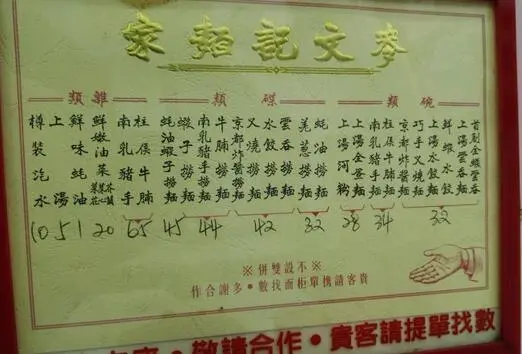 麥文記麵家
碗類
首創全蝦雲吞
上湯雲吞麵
鮮蝦水餃
上湯水餃麵
巧手叉燒麵
京都炸醬麵
32
柱侯牛腩麵
南乳豬手麵
34
上湯全蛋麵
上湯河粉
28
碟類
蚝油撈麵
羌葱撈麵
32
雲吞撈麵
水餃撈麵
叉燒撈麵
京都炸醬撈麵
42
牛腩撈麵
南乳豬手撈麵
44
蝦子撈麵
蚝油蝦子撈麵
45
雜類
柱侯牛腩
南乳豬手
65
鮮嫩油菜
20
鮮味蚝油
1
上湯
5
樽裝汽水
10
※不設雙併※
貴客請携單柜面找數•多謝合作
敬請合作•貴客請提單找數